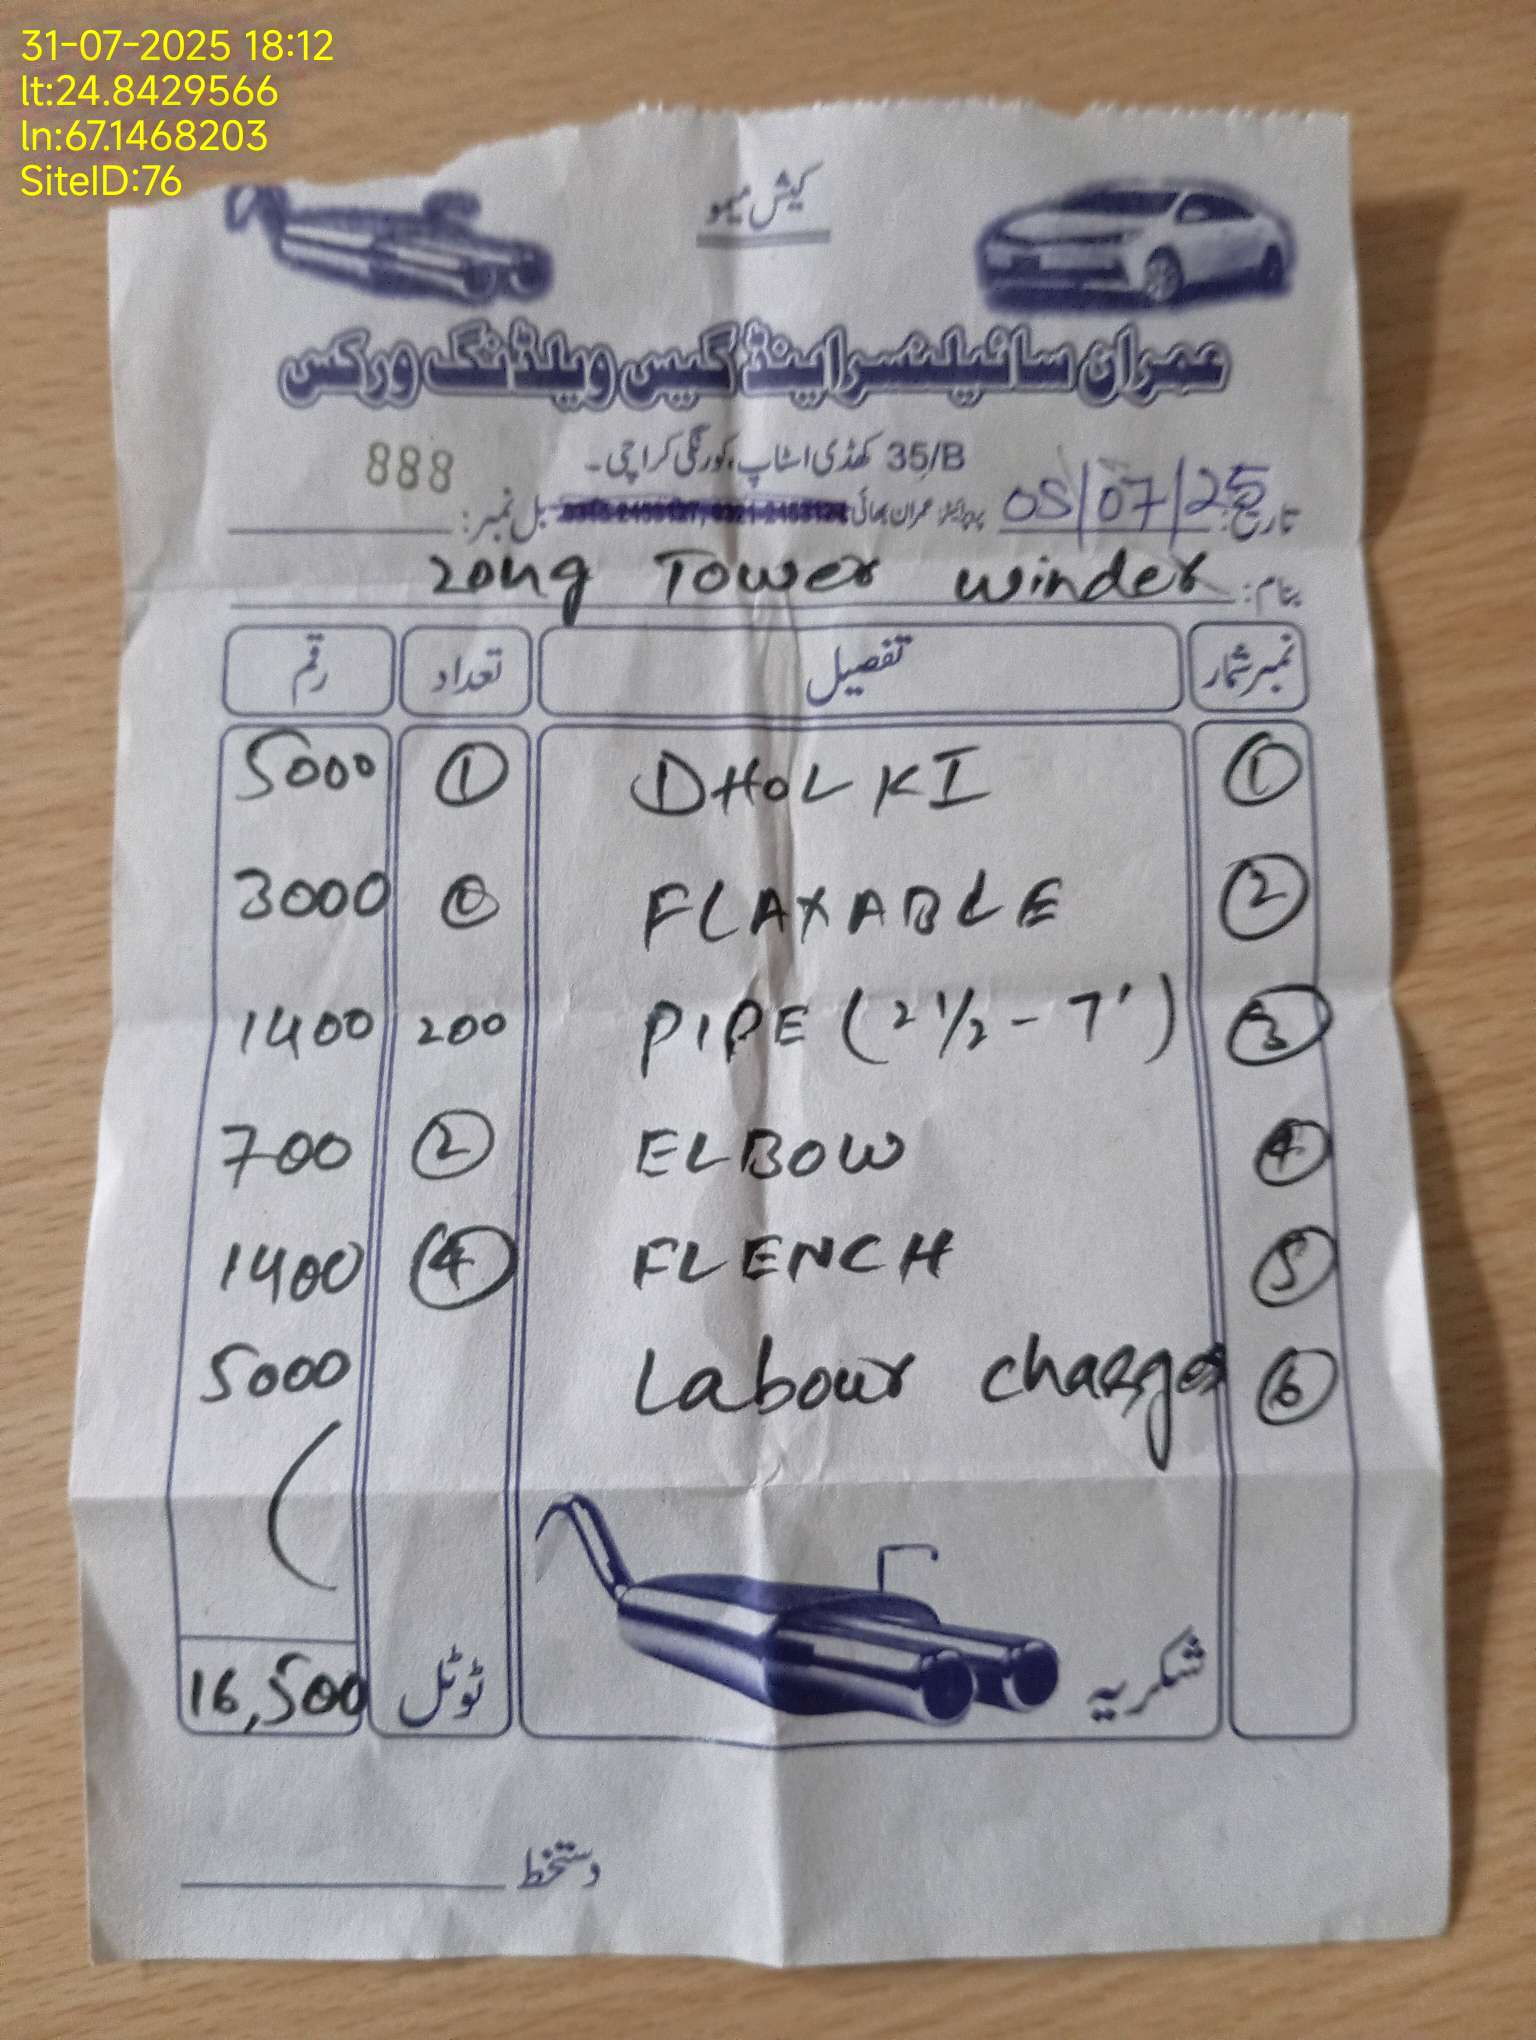 31-07-2025 18:12
lt:24.8429566
ln:67.1468203
SiteID:76
کیش میمو
عمران سائیلنسر اینڈ گیس ویلڈنگ ورکس
35/B کھڈی اسٹاپ، کورنگی کراچی۔
888
تاریخ: 05/07/25 پروپرائیٹر: عمران بھائی بل نمبر:
بنام: Zong Tower winder
نمبر شمار تفصیل تعداد رقم
1 DHOLKI 1 5000
2 FLAXABLE 3000
3 PIPE (2 1/2 - 7') 200 1400
4 ELBOW 2 700
5 FLENCH 4 1400
6 Labour charges 5000
شکریہ ٹوٹل 16,500
دستخط